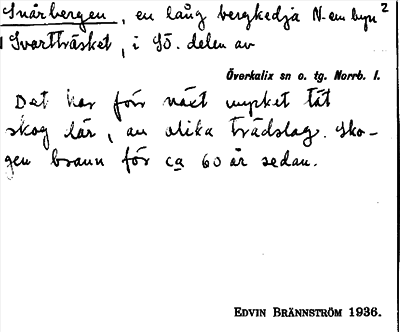 Snårbergen, en lång bergkedja N. om byn 2
1 Svartträsket, i SÖ. delen av
Överkalix sn o. tg. Norrb. l.
Det har förr växt mycket tät
skog där, av olika trädslag. Sko-
gen brann för ca 60 år sedan.
EDVIN BRÄNNSTRÖM 1936.